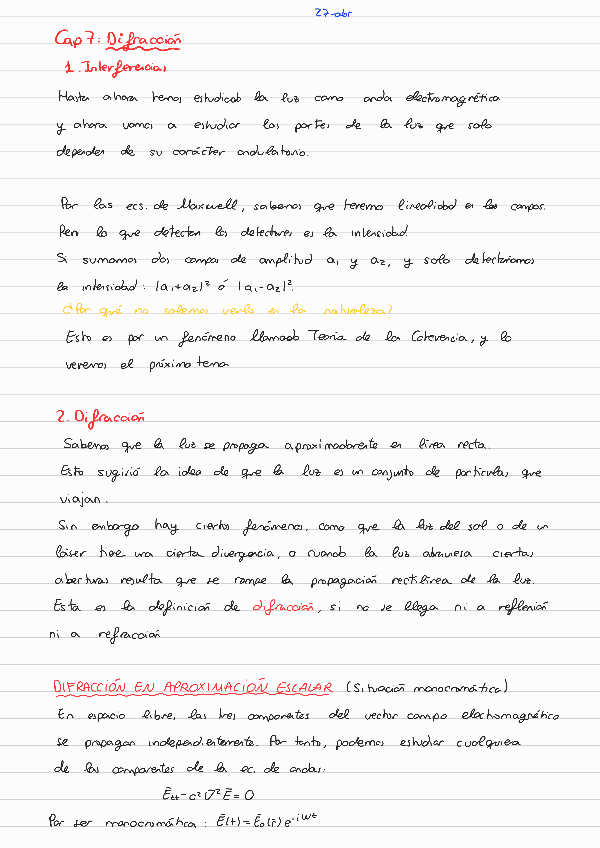 27-abr
Cap 7: Difracción
1. Interferencias
Hasta ahora hemos estudiado la luz como onda electromagnética
y ahora vamos a estudiar las partes de la luz que solo
dependen de su carácter ondulatorio.
Por las ecs. de Maxwell, sabemos que tenemo linealidad en los campos.
Pero lo que detectan los detectores es la intensidad.
Si sumamos dos campos de amplitud a₁ y a₂, y solo detectaríamos
la intensidad: |a₁+a₂|² ó |a₁-a₂|².
¿Por qué no solemos verlo en la naturaleza?
Esto es por un fenómeno llamado Teoría de la Coherencia, y lo
veremos el próximo tema
2. Difracción
Sabemos que la luz se propaga aproximadamente en línea recta.
Esto sugirió la idea de que la luz es un conjunto de partículas que
viajan.
Sin embargo hay ciertos fenómenos, como que la luz del sol o de un
láser tiene una cierta divergencia, o cuando la luz atraviesa ciertas
aberturas resulta que se rompe la propagación rectilínea de la luz.
Esta es la definición de difracción, si no se llega ni a reflexión
ni a refracción
DIFRACCIÓN EN APROXIMACIÓN ESCALAR (Situación monocromática)
En espacio libre, las tres componentes del vector campo electromagnético
se propagan independientemente. Por tanto, podemos estudiar cualquiera
de las componentes de la ec. de ondas:
Ē_tt - c²∇²Ē = 0
Por ser monocromática: Ē(t) = Ē₀(r̄) e^-iωt